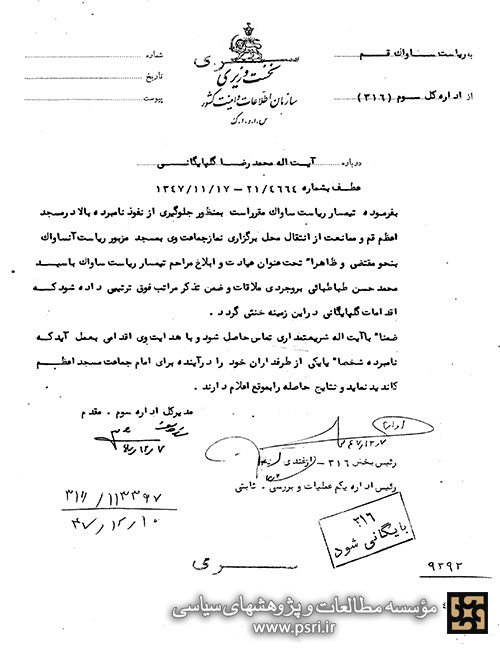 سری
نخست وزیری
سازمان اطلاعات و امنیت کشور
س.ا.و.ا.ک
به ریاست ساواک قم
از اداره کل سوم (۳۱۶)
شماره
تاریخ
پیوست
درباره آیت اله محمد رضا گلپایگانی
عطف بشماره ۲۱/۴۶۶۴ - ۱۳۴۷/۱۱/۱۷
بفرموده تیمسار ریاست ساواک مقرراست بمنظور جلوگیری از نفوذ نامبرده بالا در مسجد
اعظم قم و ممانعت از انتقال محل برگزاری نماز جماعت وی بمسجد مزبور ریاست آنساواک
بنحو مقتضی و ظاهرا" تحت عنوان عیادت و ابلاغ مراحم تیمسار ریاست ساواک با سید
محمد حسن طباطبائی بروجردی ملاقات و ضمن تذکر مراتب فوق ترتیبی داده شود که
اقدامات گلپایگانی در این زمینه خنثی گردد.
ضمنا" با آیت اله شریعتمداری تماس حاصل شود و با هدایت وی اقدامی بعمل آید که
نامبرده شخصا" یا یکی از طرفداران خود را در آینده برای امام جماعت مسجد اعظم
کاندید نماید و نتایج حاصله را بموقع اعلام دارند.
مدیر کل اداره سوم . مقدم
رئیس بخش ۳۱۶ - ازغندی
رئیس اداره یکم عملیات و بررسی . ثابتی
۳۱۶/۱۱۳۳۹۷
۴۷/۱۲/۱۰
۳۱۶
بایگانی شود
سری
۹۲۹۲
مؤسسه مطالعات و پژوهشهای سیاسی
www.psri.ir